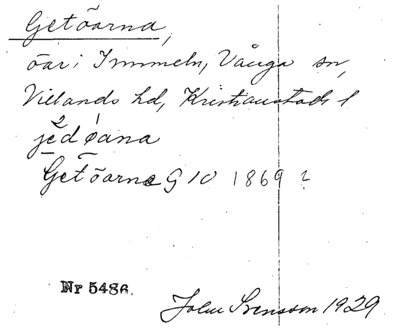 Getöarna,
öar i Immeln, Vånga sn,
Villands hd, Kristianstads l
jedøana
Getöarne G 10 1869 ?
Nr 5486.
John Svensson 1929